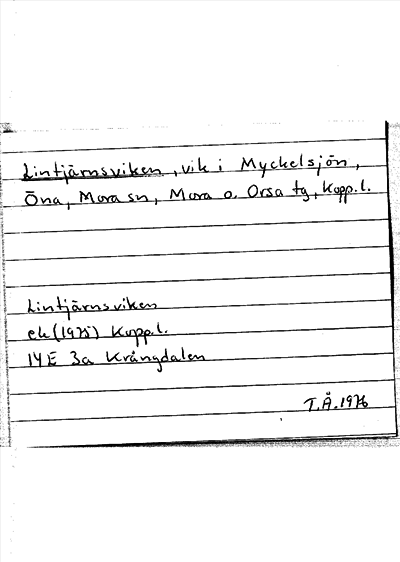 Lintjärnsviken, vik i Myckelsjön,
Öna, Mora sn, Mora o. Orsa tg, Kopp.l.
Lintjärnsviken
ek (1975) Kopp.l.
14E 3a Krångdalen
T.Å. 1976